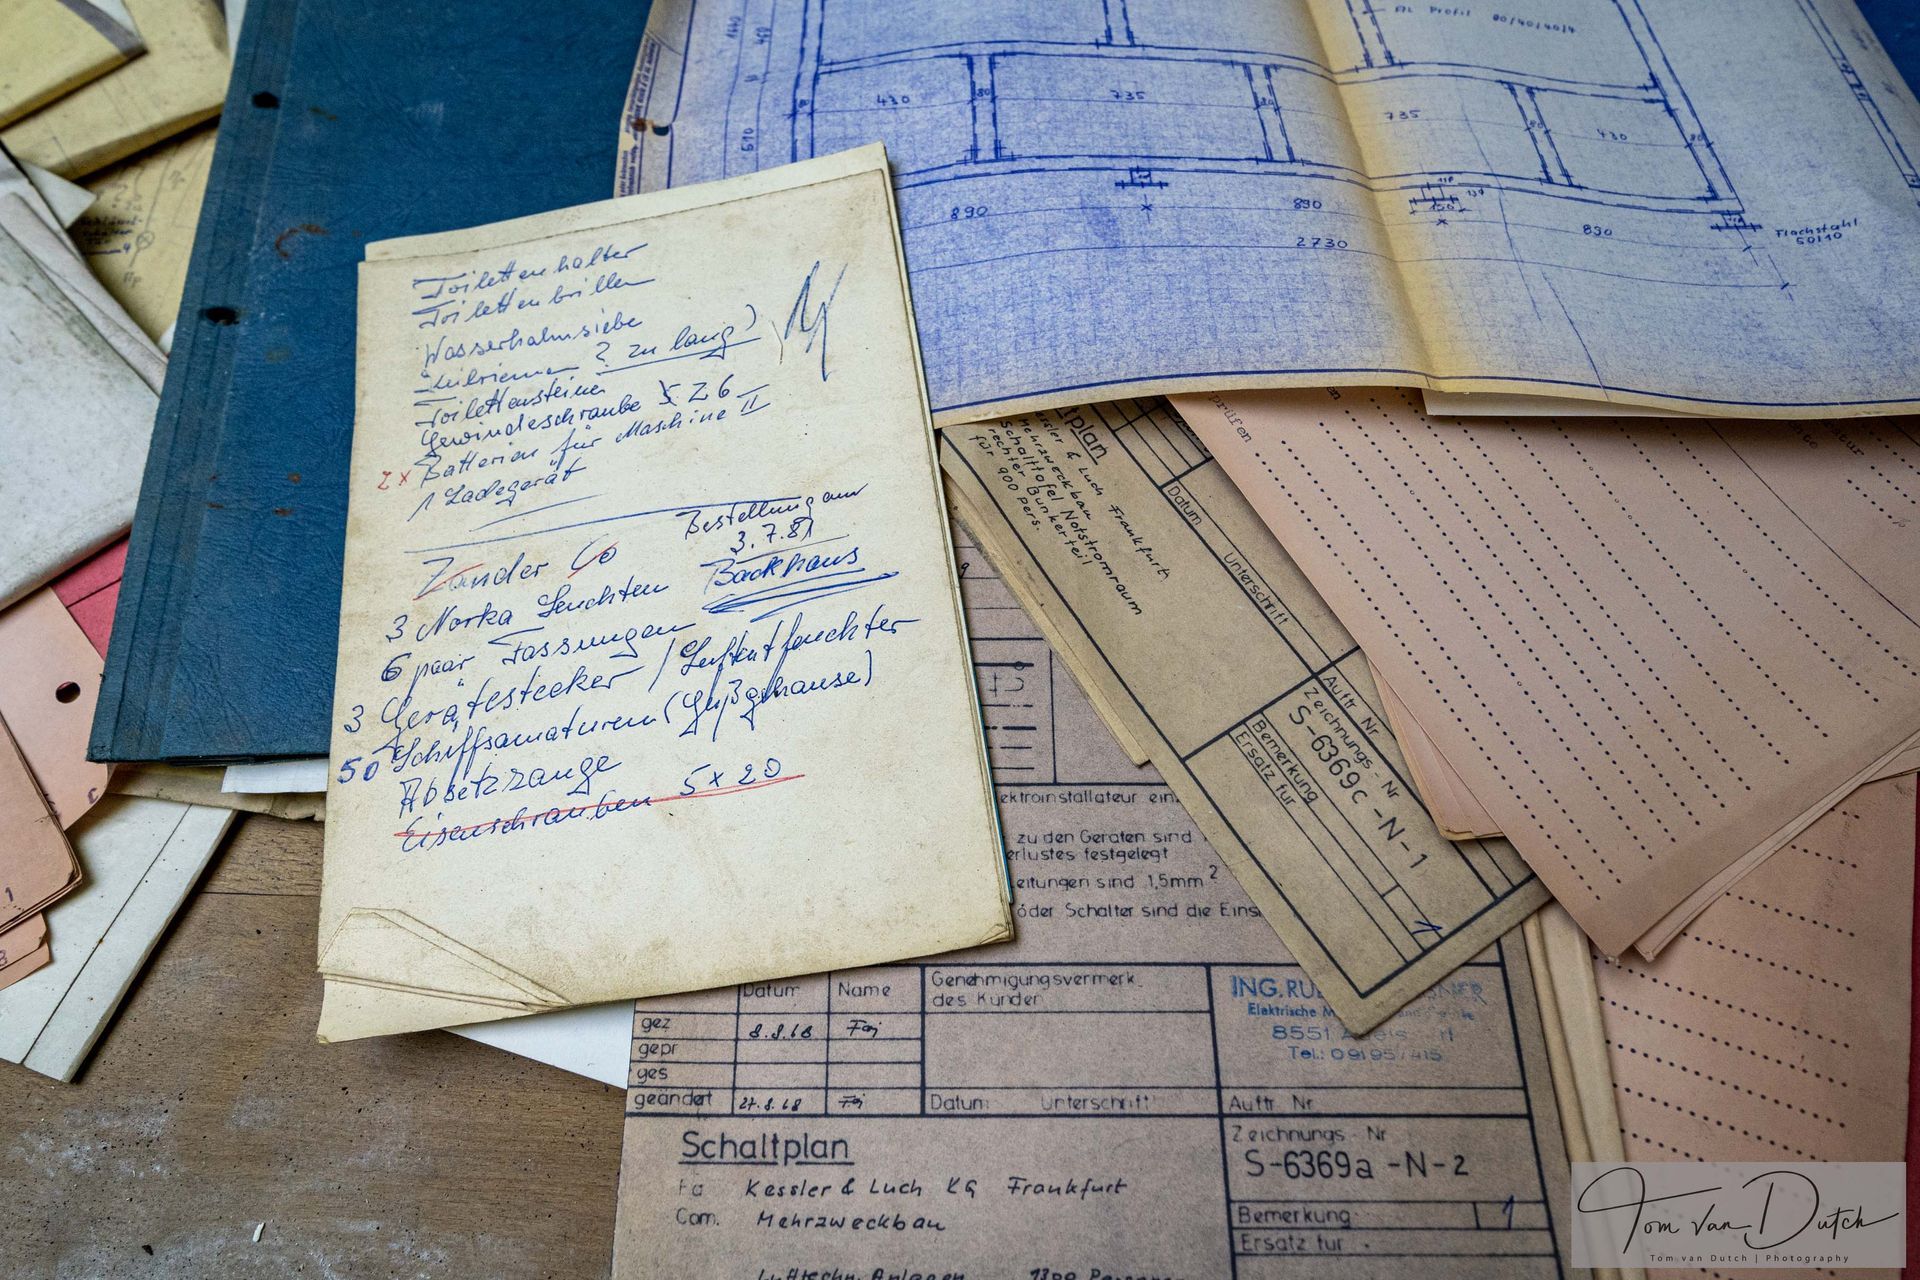 AL Profil 80/40/40/4
430
80
735
80
735
80
430
80
510
890
890
150
890
2730
Flachstahl
50/10
Toilettenhalter
Toilettenbrillen
Wasserhahnsiebe
? zu lang)
Toilettensteine
Gewindeschraube 5 Z 6
2x Batterien für Maschine II
1 Ladegerät
Bestellung am
3.7.81
Zander Co
Backhaus
3 Norka Leuchten
6 paar Fassungen
3 Gerätestecker / Luftentfeuchter
50 Schiffsamaturen (Gußgehäuse)
Absetzzange
Eisenschrauben 5x20
prüfen
plan
Kessler & Luch Frankfurt
Mehrzweckbau
Schalttafel Notstromraum
rechter Bunkerteil
für 900 Pers.
Datum
Unterschrift
Auftr. Nr
Zeichnungs-Nr
S-6369c-N-1
Bemerkung
Ersatz für
1
ektroinstallateur
zu den Geräten sind
erlustes festgelegt
eitungen sind 1,5mm²
oder Schalter sind die
Datum Name
gez 8.8.68
gepr
ges
geändert 27.8.68
Genehmigungsvermerk
des Kunden
Datum: Unterschrift
ING.
Elektrische
8551
Tel.: 09195/415
Auftr. Nr.
Zeichnungs-Nr
S-6369a-N-2
Bemerkung 1
Ersatz für
Schaltplan
Fa Kessler & Luch KG Frankfurt
Com. Mehrzweckbau
Lufttechn. Anlagen
1
8
Tom van Dutch
Tom van Dutch | Photography